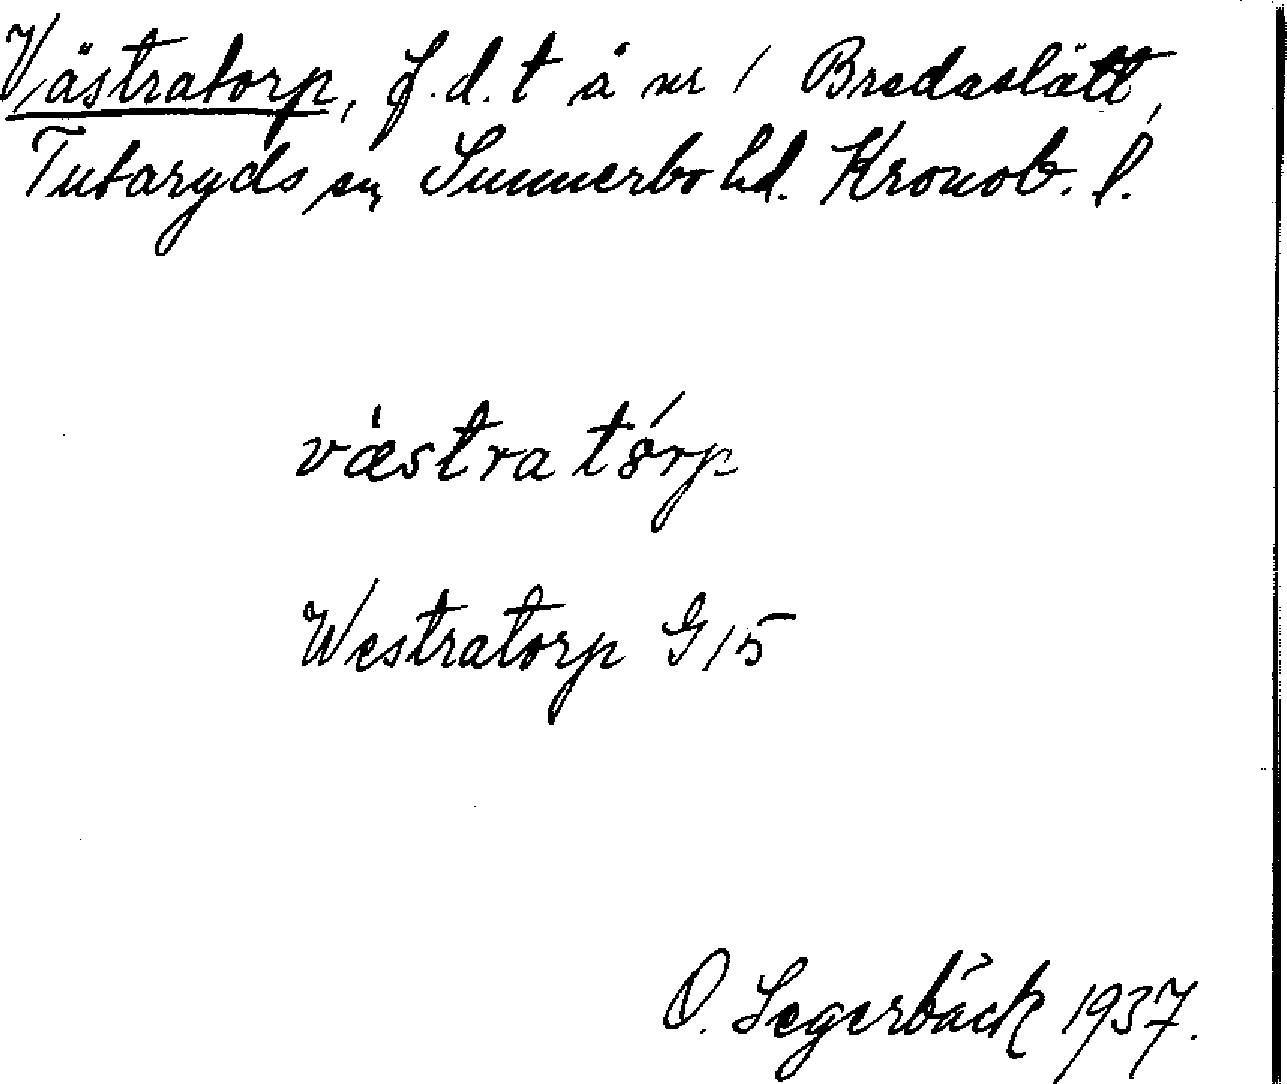 Västratorp, f.d. t å nr 1 Bredaslätt,
Tutaryds sn, Sunnerbo hd. Kronob. l.
væ̀stra tórp
Westratorp G 15
O. Segerbäck 1937.